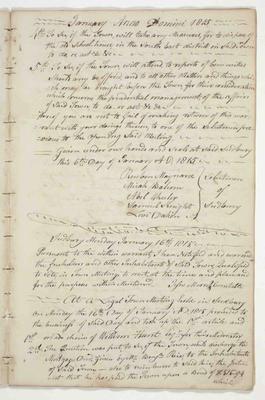 January Anno Domini 1815
4th To See if the Town will take any Measures for to dispose of
the old School house in the South East district in said Town
to do or act &c &c
5th To See if the Town will attend to reports of Committees
Should any be offered, and to all other Matters and things which
may be brought before the Town for their consideration
which concerns the prudential management of the affairs
of said Town to do or act &c &c
fore, you are not to fail of making return of this war-
rant with your doings therein, to one of the Selectmen pre-
vious to the opening Said Meeting
Given under our hands and Seals at Said Sudbury
this 6th Day of January A D. 1815
Reuben Maynard
Micah
Abel Wheeler
Samuel Knight
Levi Dakin
Selectmen
of
Sudbury
Sudbury Monday January 16th 1815
Pursuant to the within warrant I have Notified and warned
the freeholders and other Inhabitants of Said Town Qualified
to Vote in Town Meetings to meet at the time and place and
for the purposes within Mentioned. Constable
At a Legal Town Meeting held in Sudbury
on Monday the 16th Day of January A D. 1815 proceeded to
the business of Said Day and took up the 1st article and
1st made choice of William Hunt Esqr for their Moderator
2d The Question was put to See if the Town will discharge the
Mortgage Deed Given by to the Inhabitants
of Said Town
that he has paid the Town upon a Bond of
which